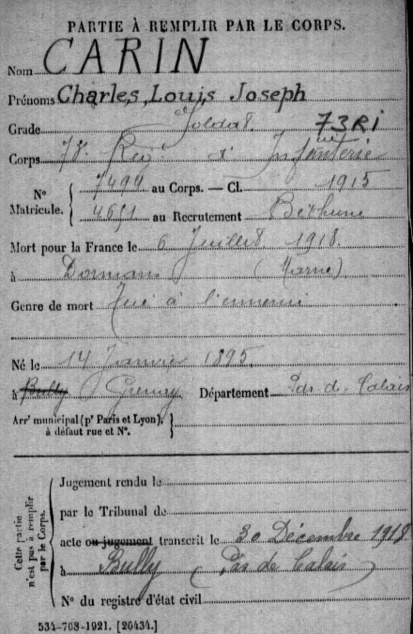 PARTIE À REMPLIR PAR LE CORPS.
Nom CARIN
Prénoms Charles, Louis, Joseph
Grade Soldat. 73RI
Corps 73e Régt d'Infanterie
N° Matricule. { 7494 au Corps. — Cl. 1915
4651 au Recrutement Béthune
Mort pour la France le 6 Juillet 1918.
à Dormans (Marne)
Genre de mort Tué à l'ennemi
Né le 14 Janvier 1895.
à Bully Grenay Département Pas de Calais
Arrt municipal (pr Paris et Lyon), à défaut rue et N°. }
Cette partie n'est pas à remplir par le Corps.
Jugement rendu le
par le Tribunal de
acte ou jugement transcrit le 30 Décembre 1918
à Bully (Pas de Calais)
N° du registre d'état civil
534-708-1921. [26434.]